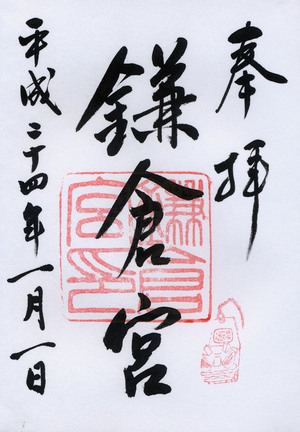 奉拝
鎌倉宮
平成二十四年一月一日
鎌倉宮印